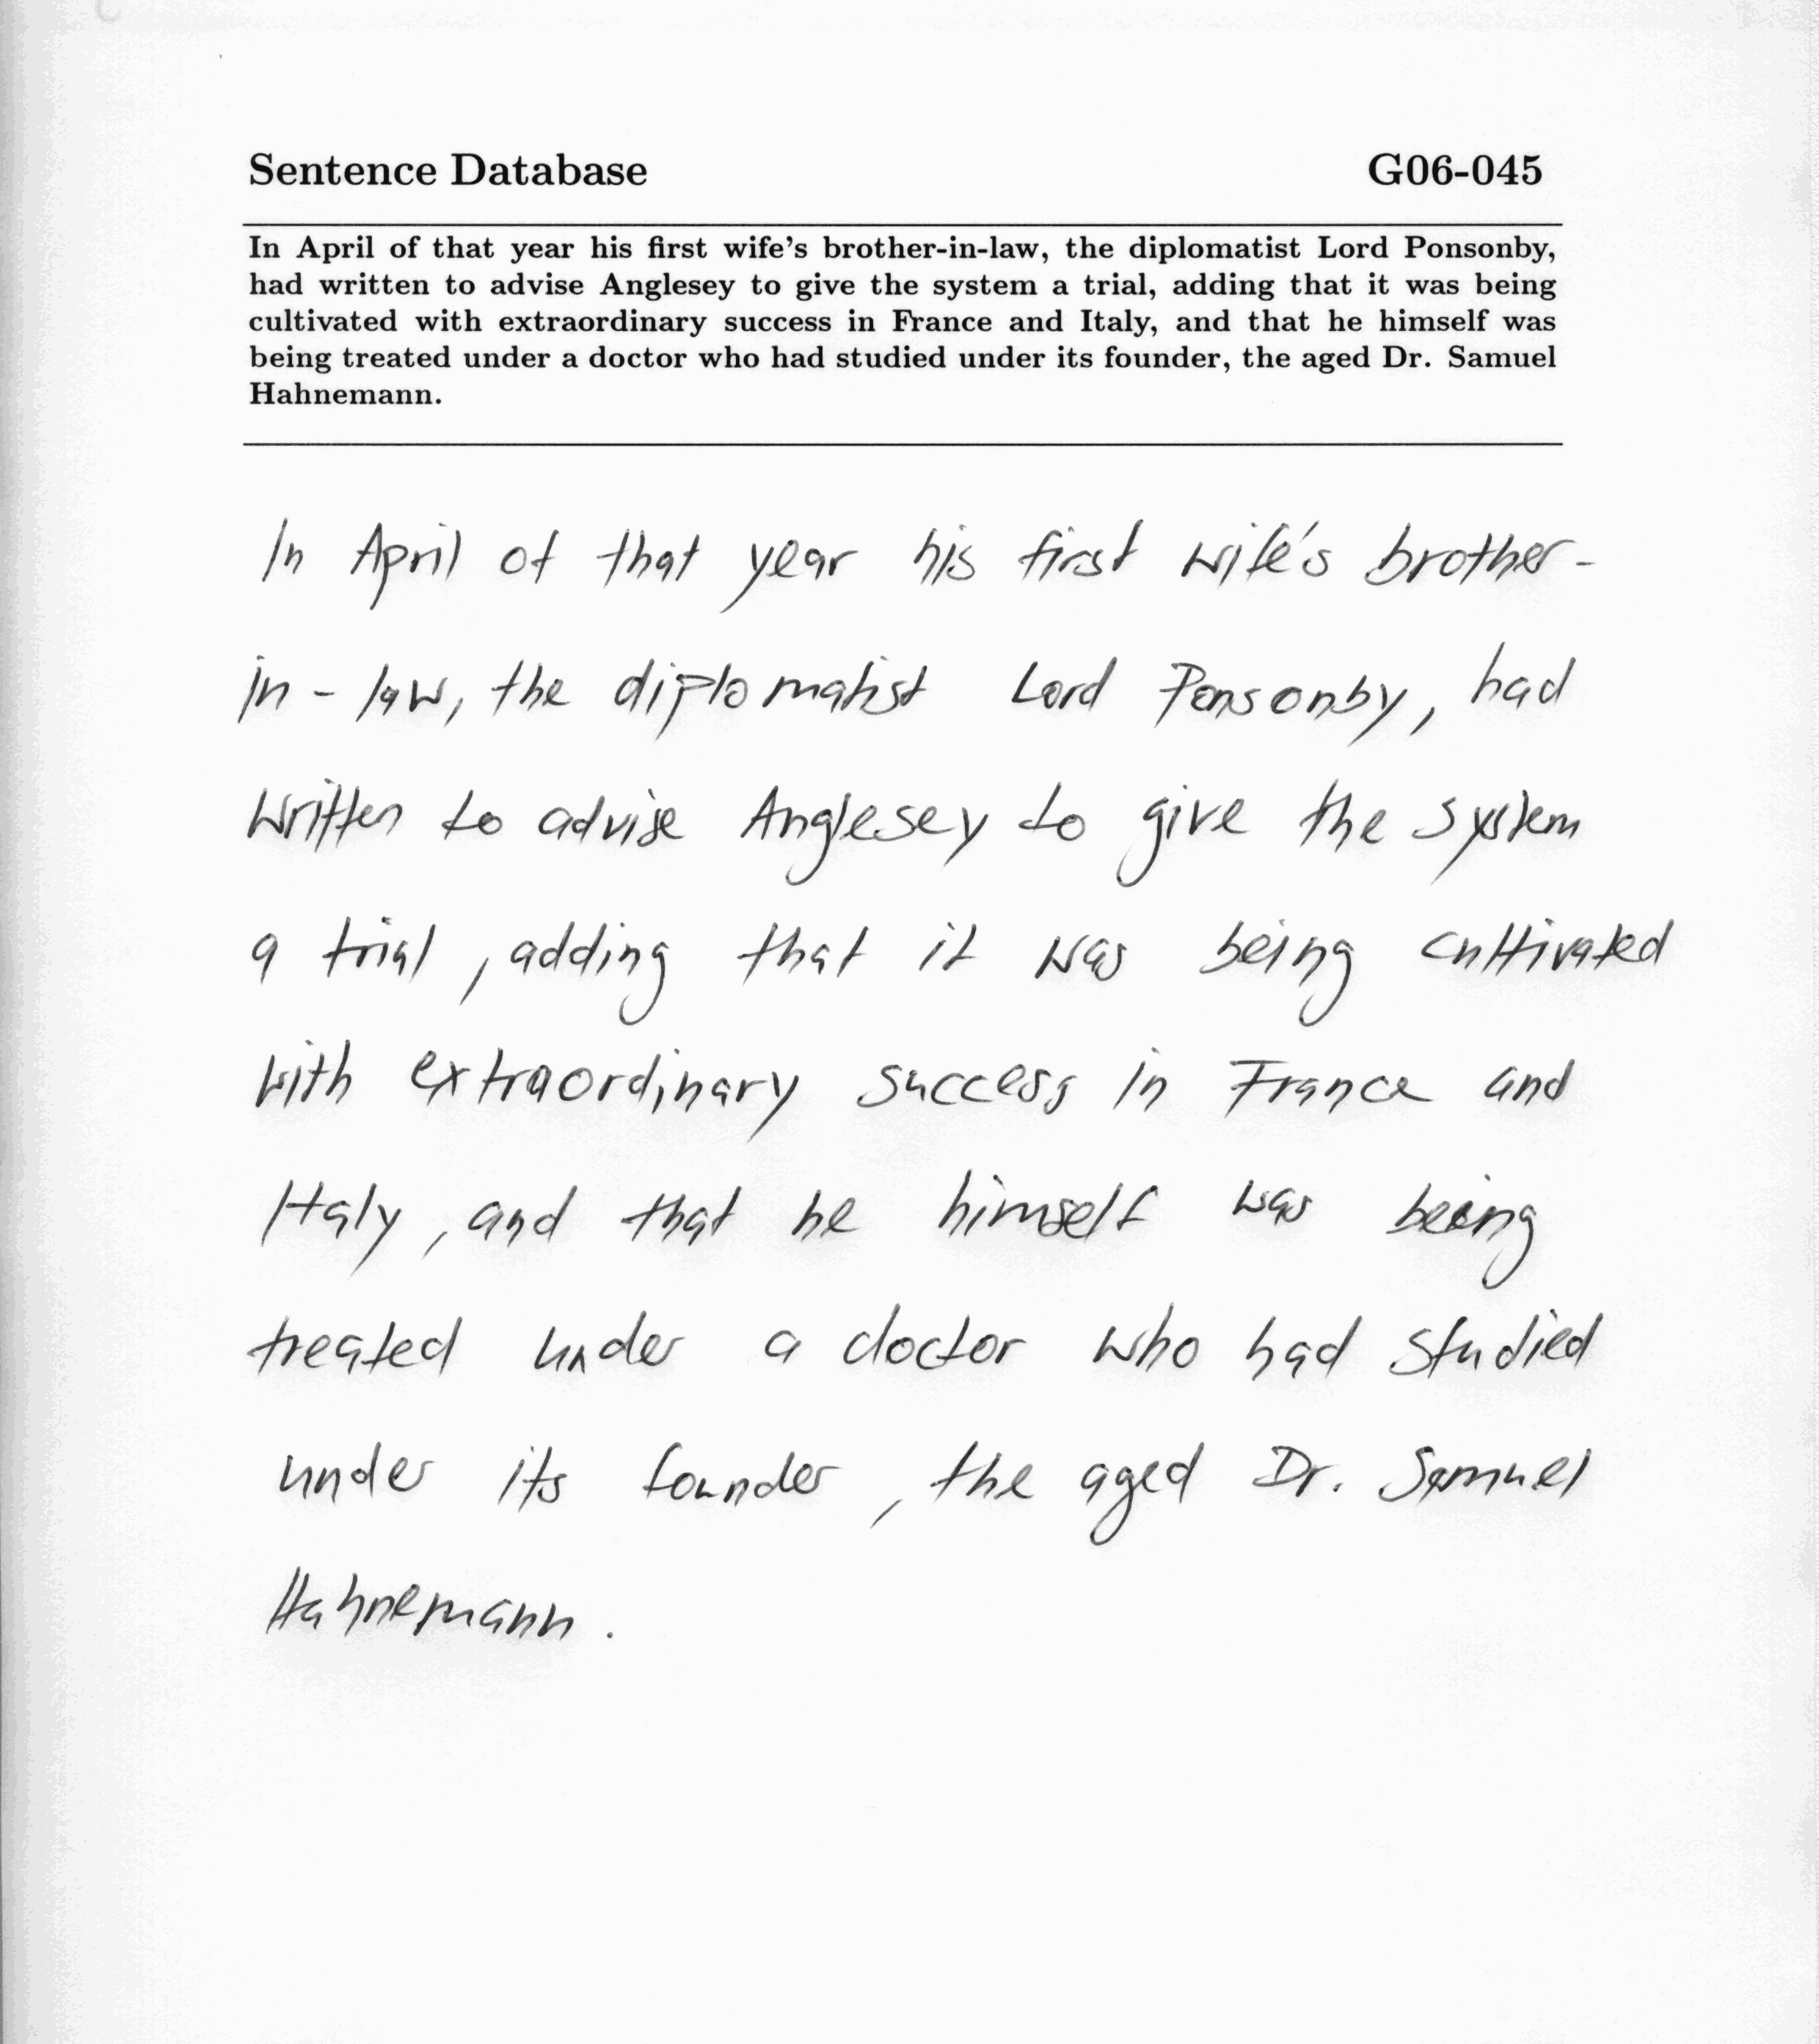 Sentence Database G06-045
In April of that year his first wife's brother-in-law, the diplomatist Lord Ponsonby,
had written to advise Anglesey to give the system a trial, adding that it was being
cultivated with extraordinary success in France and Italy, and that he himself was
being treated under a doctor who had studied under its founder, the aged Dr. Samuel
Hahnemann.
In April of that year his first wife's brother-
in-law, the diplomatist Lord Ponsonby, had
written to advise Anglesey to give the system
a trial, adding that it was being cultivated
with extraordinary success in France and
Italy, and that he himself was being
treated under a doctor who had studied
under its founder, the aged Dr. Samuel
Hahnemann.